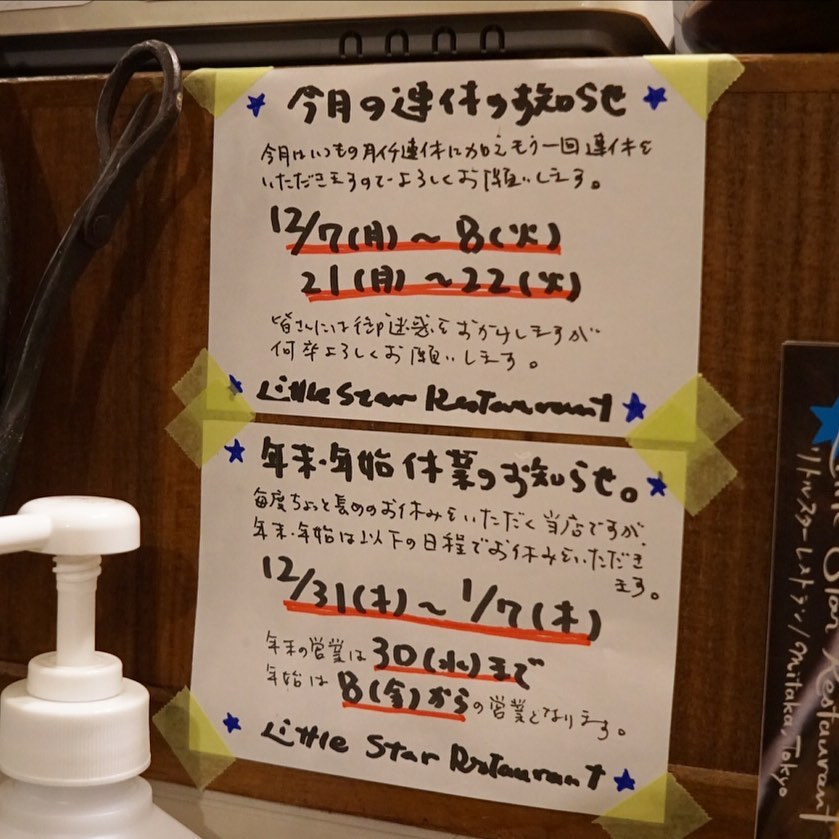 今月の連休のお知らせ
今月はいつもの月イチ連休に加えもう一回連休を
いただきますのでよろしくお願いします。
12/7(月)〜8(火)
21(月)〜22(火)
皆さんには御迷惑をおかけしますが
何卒よろしくお願いします。
Little Star Restaurant
年末・年始休業のお知らせ。
毎度ちょっと長めのお休みをいただく当店ですが、
年末・年始は以下の日程でお休みをいただき
ます。
12/31(木)〜1/7(木)
年末の営業は30(水)まで
年始は8(金)からの営業となります。
Little Star Restaurant
Star Restaurant
リトルスターレストラン/mitaka,Tokyo